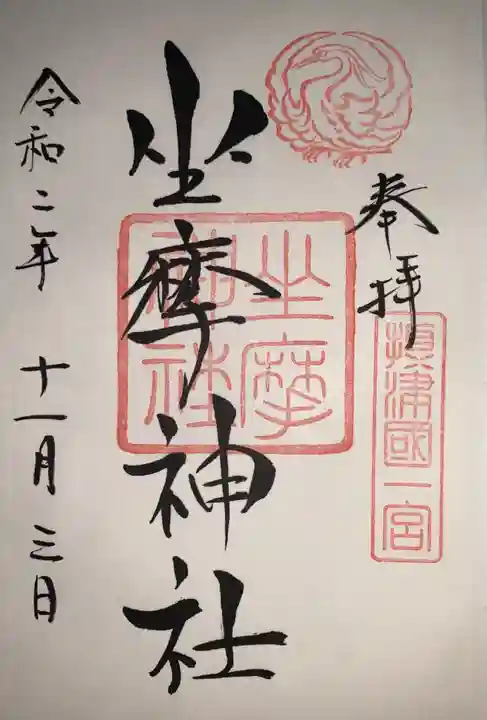 奉拝
摂津國一宮
坐摩神社
坐摩
神社
令和二年 十一月三日